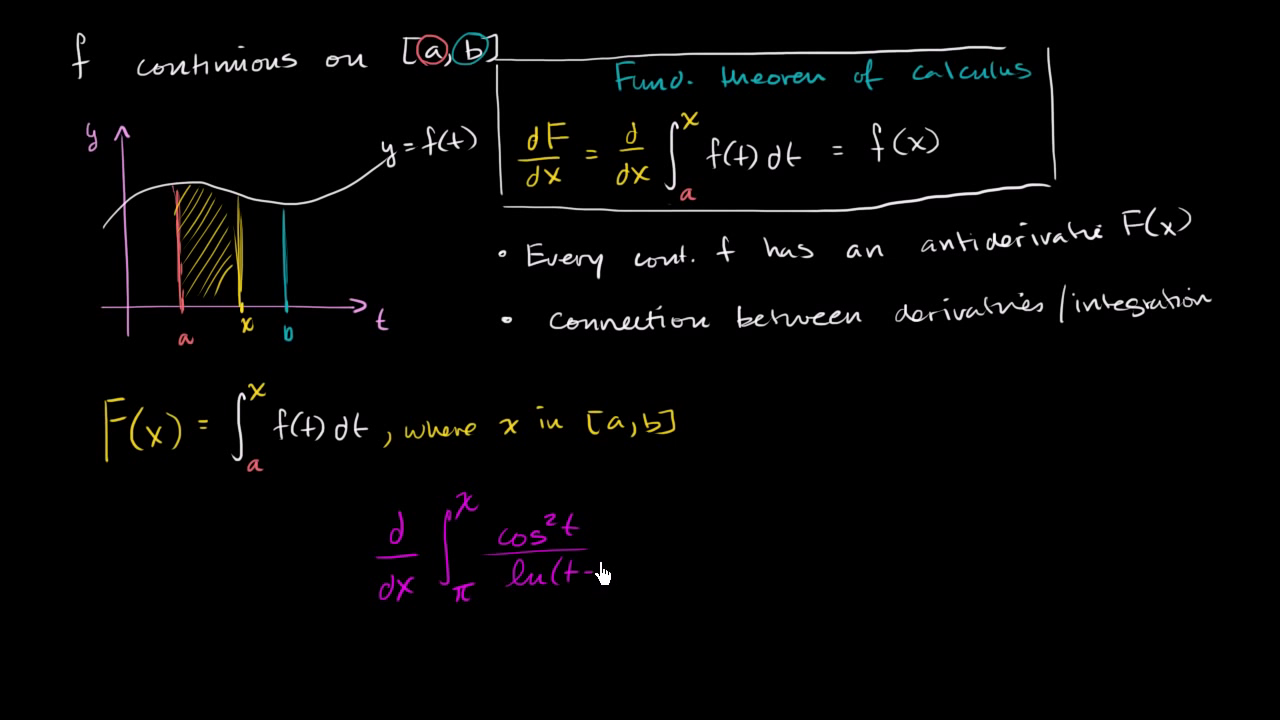 f continuous on [a, b]
Fund. theorem of calculus
dF/dx = d/dx ∫_a^x f(t) dt = f(x)
y
y = f(t)
a
x
b
t
• Every cont. f has an antiderivative F(x)
• connection between derivatives/integration
F(x) = ∫_a^x f(t) dt, where x in [a, b]
d/dx ∫_π^x cos²t / ln(t-